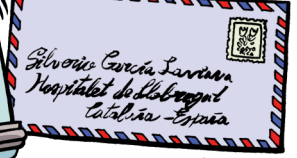 Silverio García Laviana
Hospitalet de Llobregat
Cataluña - España